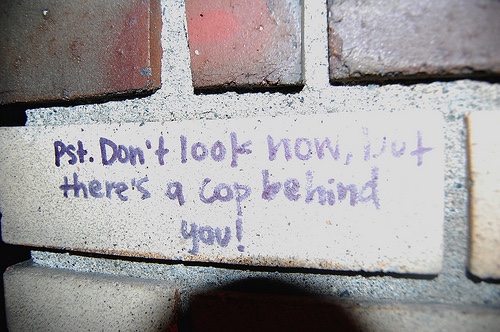 Pst. Don't look now, but
there's a cop behind
you!